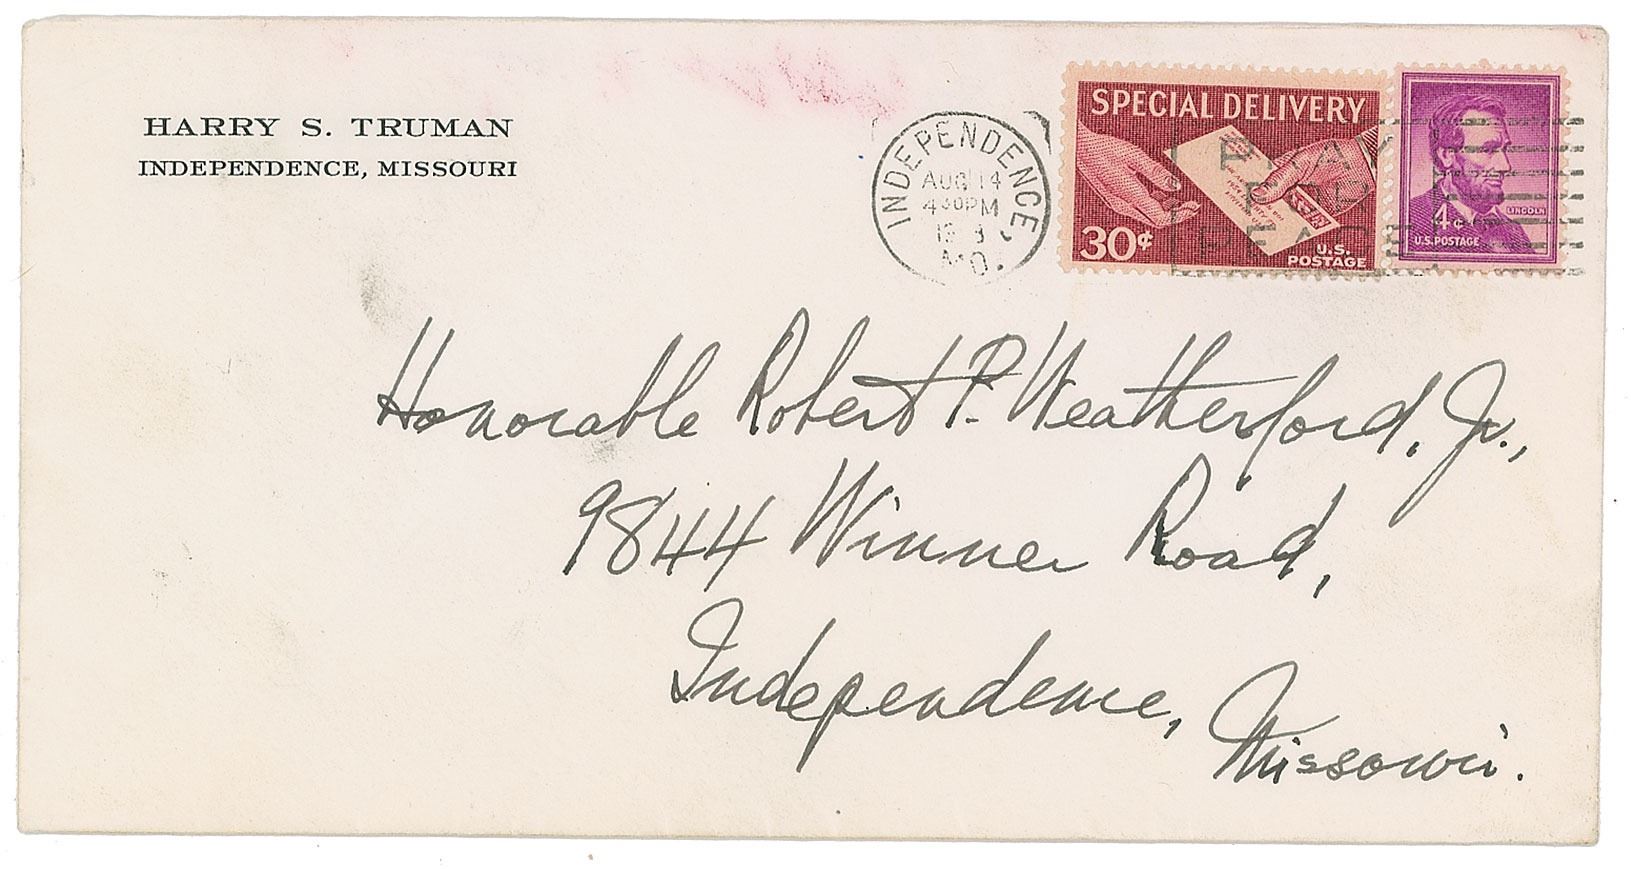 HARRY S. TRUMAN
INDEPENDENCE, MISSOURI
INDEPENDENCE,
AUG 14
4 30 PM
MO.
SPECIAL DELIVERY
30¢
U.S.
POSTAGE
PRAY
FOR
PEACE
4¢
LINCOLN
U.S. POSTAGE
Honorable Robert P. Weatherford, Jr.,
9844 Winner Road,
Independence, Missouri.